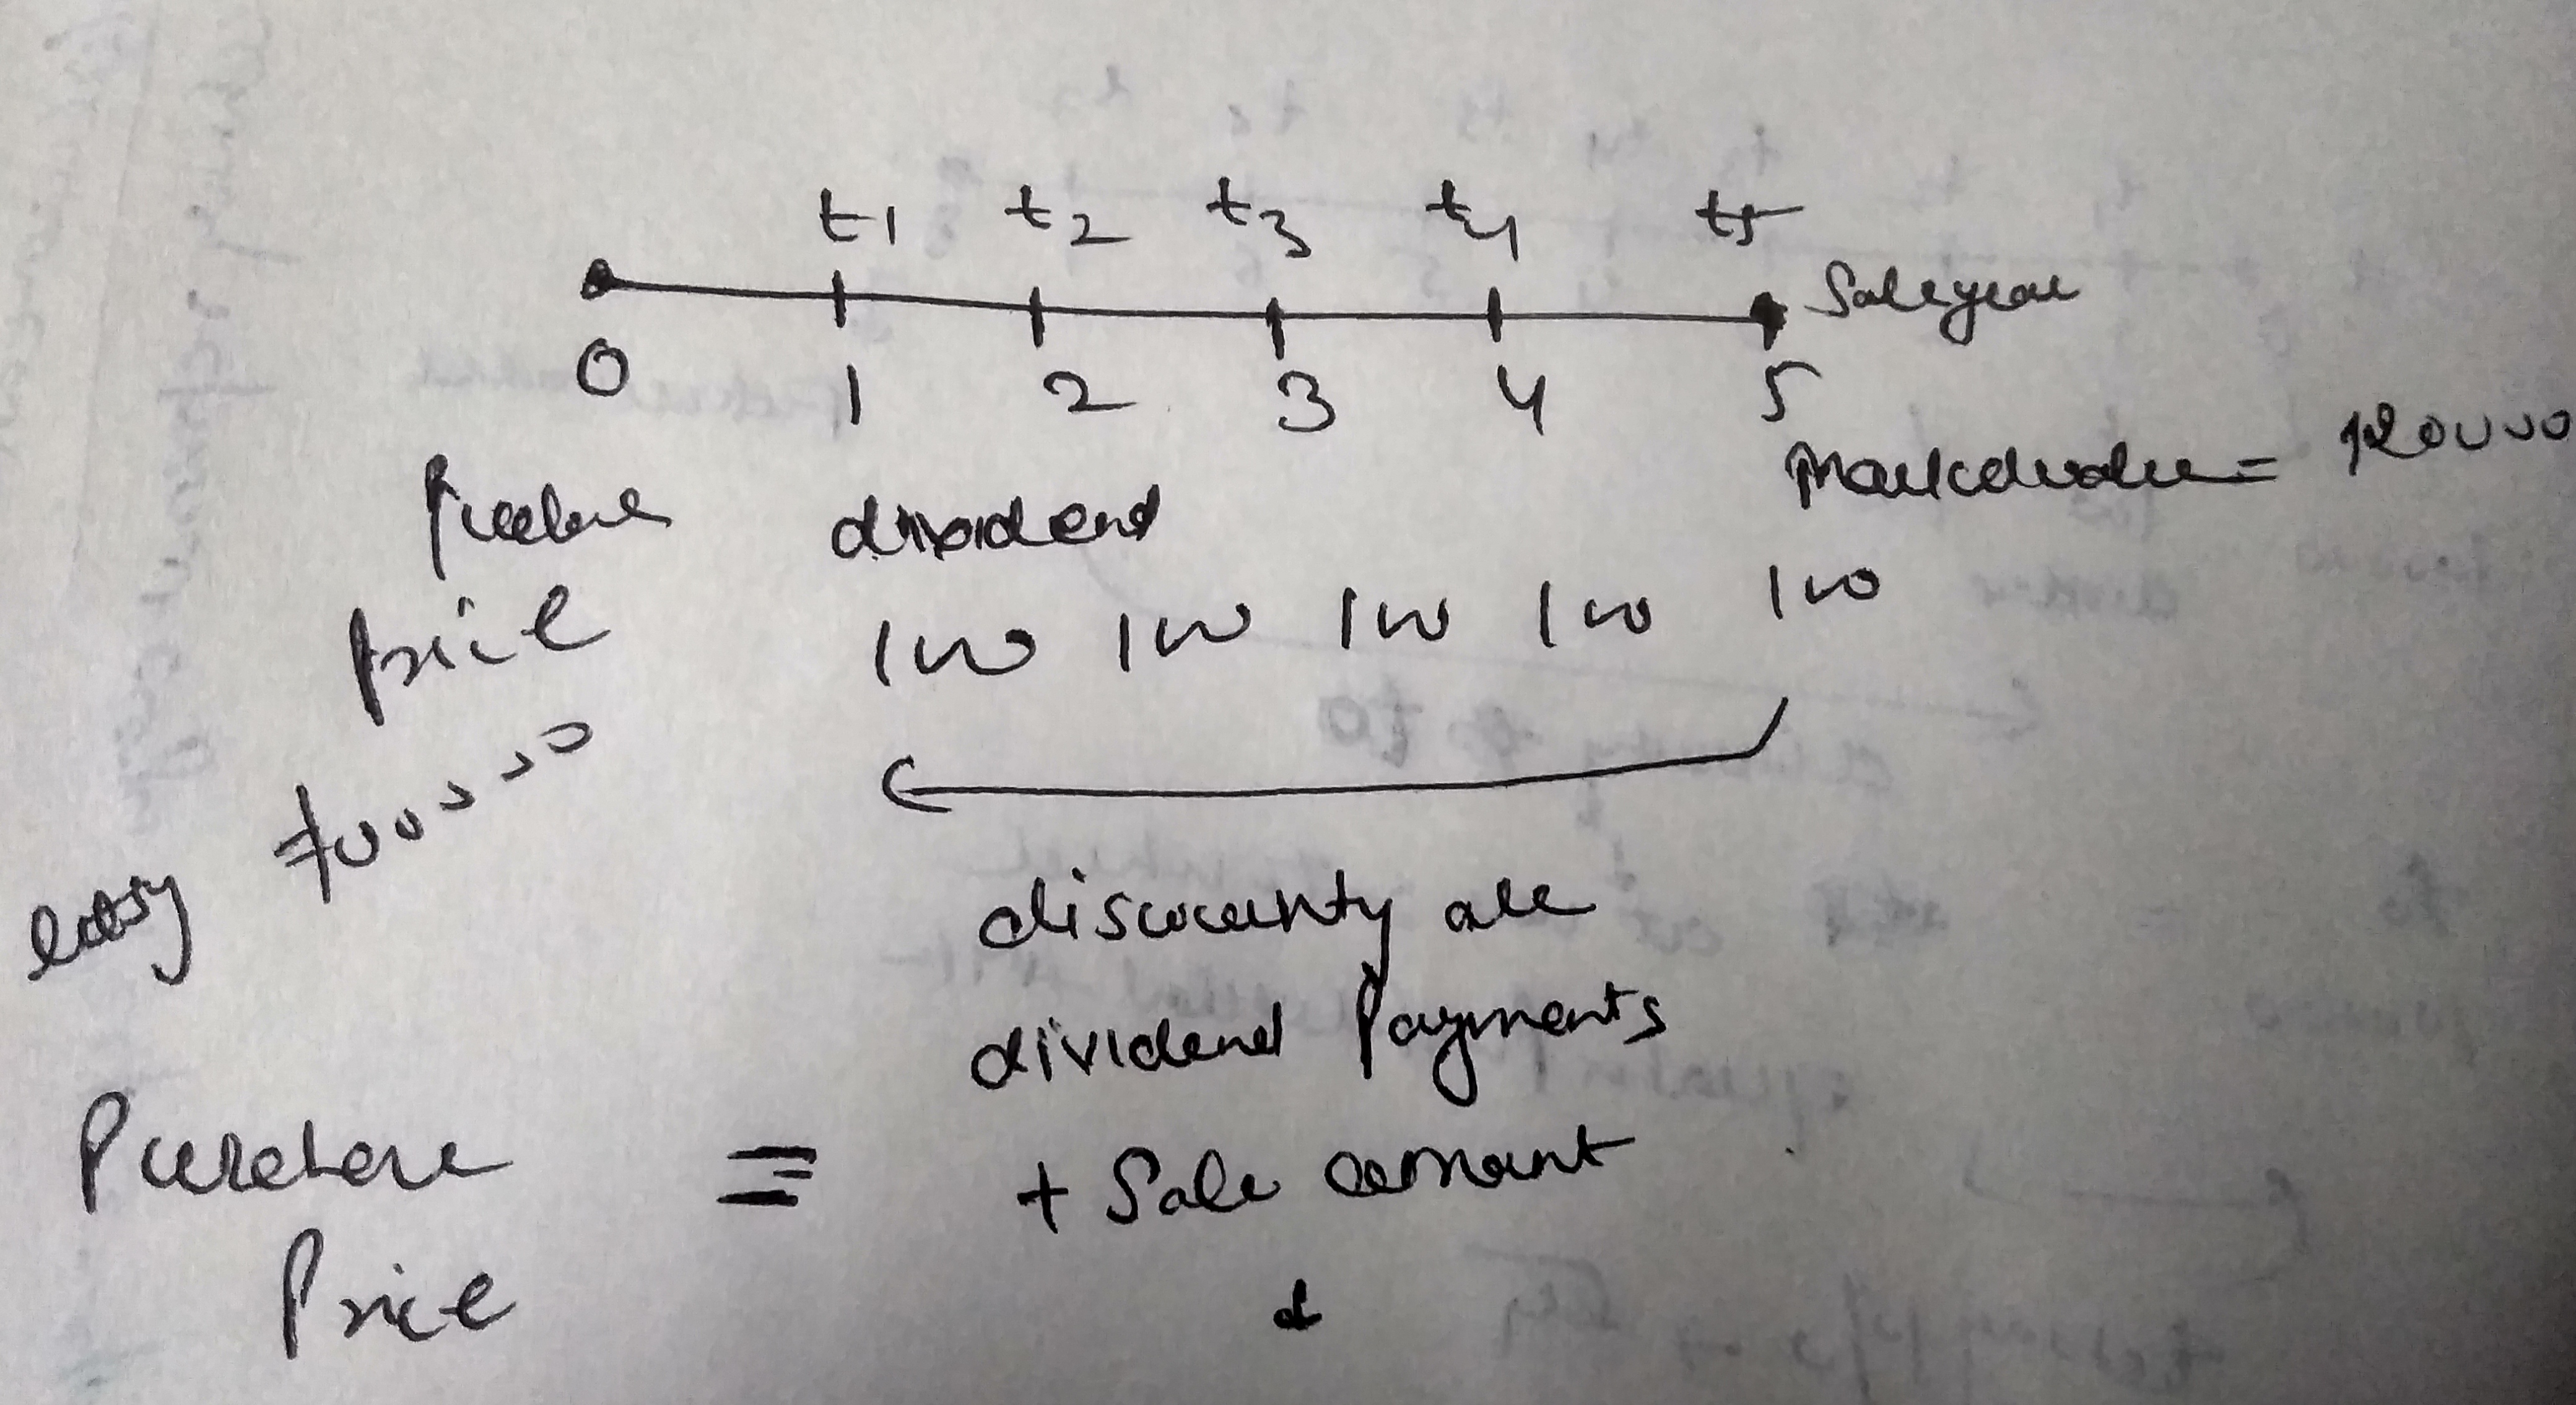 t1 t2 t3 t4 t5
Sale year
0 1 2 3 4 5
Market value = 120000
Purchase dividend
Price
100 100 100 100 100
discounting all
dividend Payments
Purchase = + Sale amount
Price